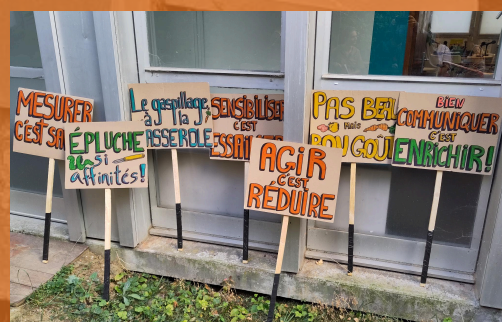 MESURER
C'EST SA
ÉPLUCHE
si
affinités!
Le gaspillage,
à la
ASSEROLE
SENSIBILISER
C'EST
AGIR
C'EST
RÉDUIRE
PAS BEAU
Mais
BON GOÛT
BIEN
COMMUNIQUER
C'EST
ENRICHIR!